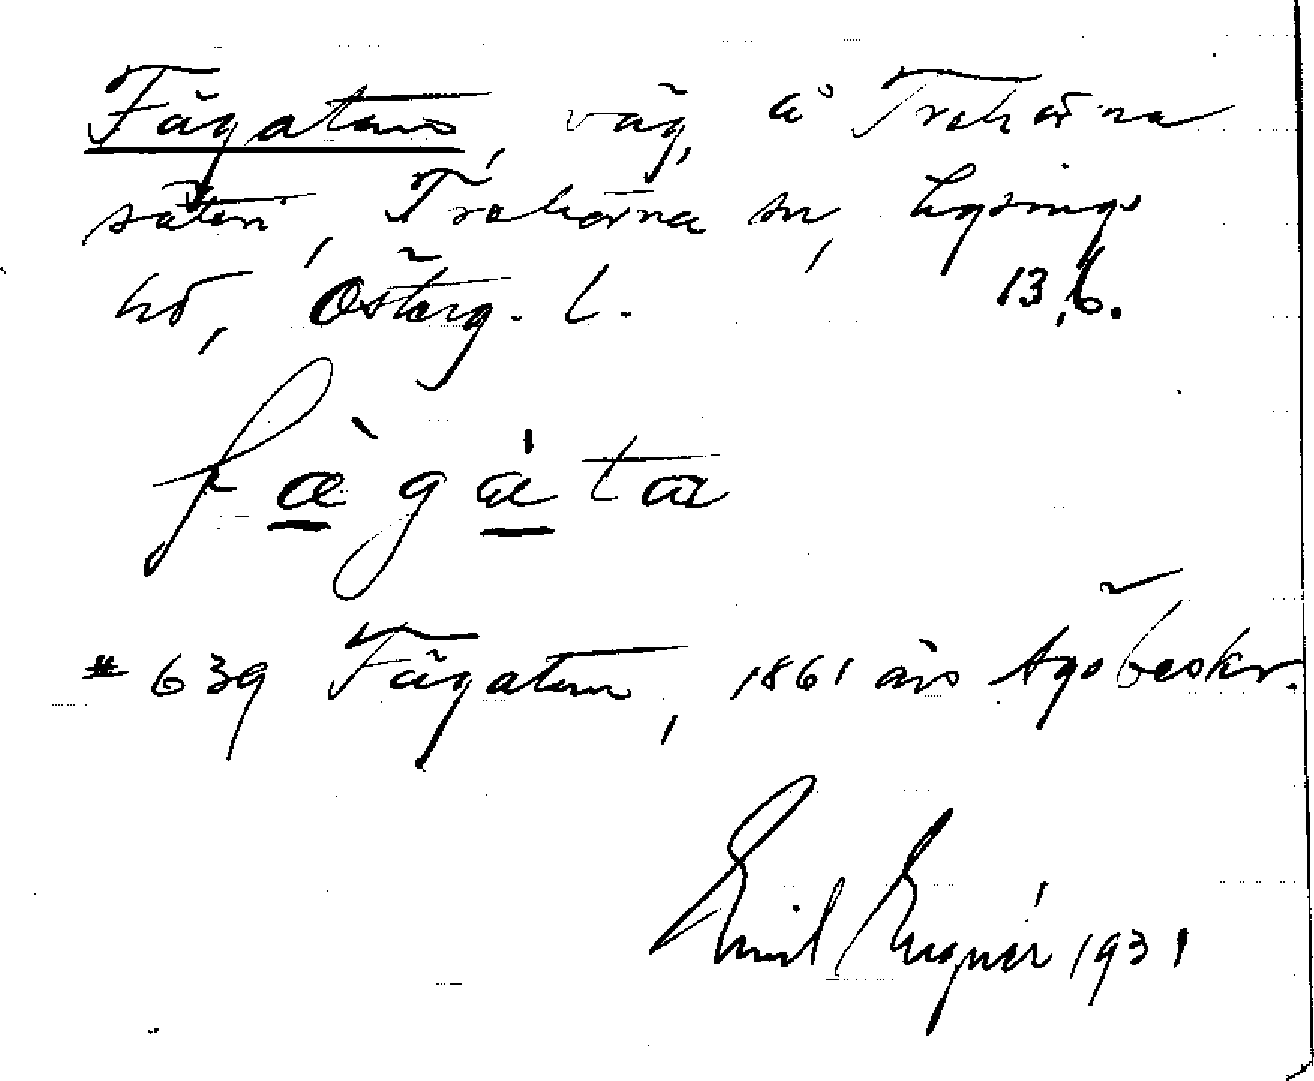 Fägatan, väg, å Trehörna
säteri, Trehörna sn, Lysings
hd, Österg. l. 13,6.
fæ̀gá̱ta
# 639 Fägatan, 1861 års Ägobeskr.
Emil Eugnér 1931